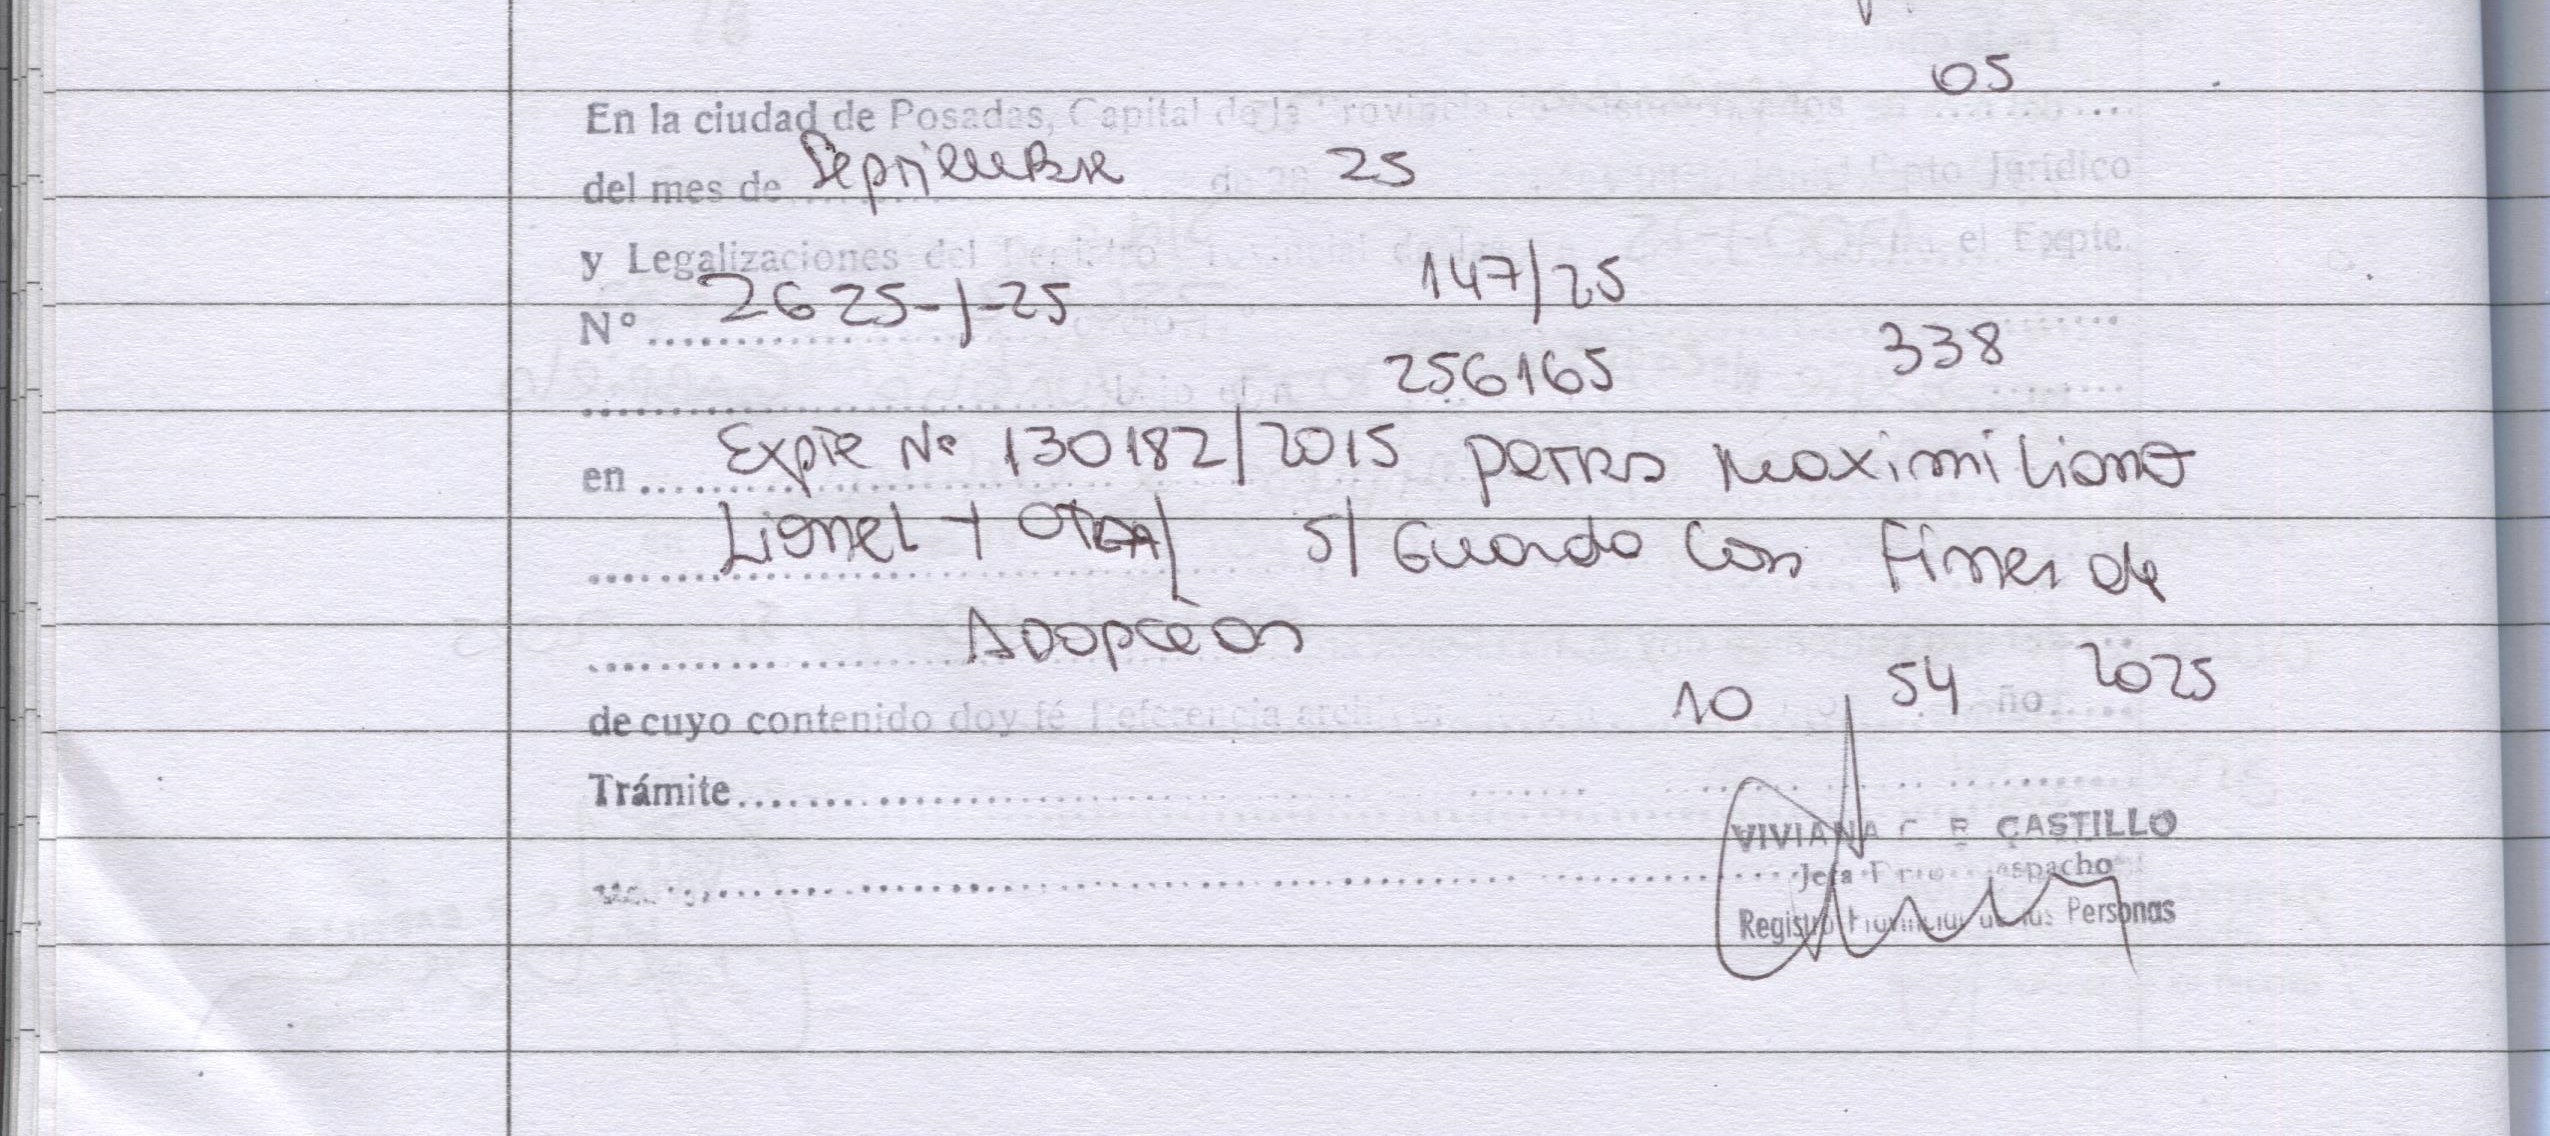 05
En la ciudad de Posadas, Capital de la Provincia
del mes de Septiembre de 20 25 Dpto Jurídico
y Legalizaciones del Registro Provincial de las el Expte.
N° 2625-J-25 147/25
256165 338
en Expte N° 130182/2015 Maximiliano
Lionel y Otra/ s/ Guarda Con Fines de
Adopción
10 54 2025
de cuyo contenido doy fé Referencia año
Trámite
VIVIANA CASTILLO
Jefa Despacho
Registro Provincial de las Personas